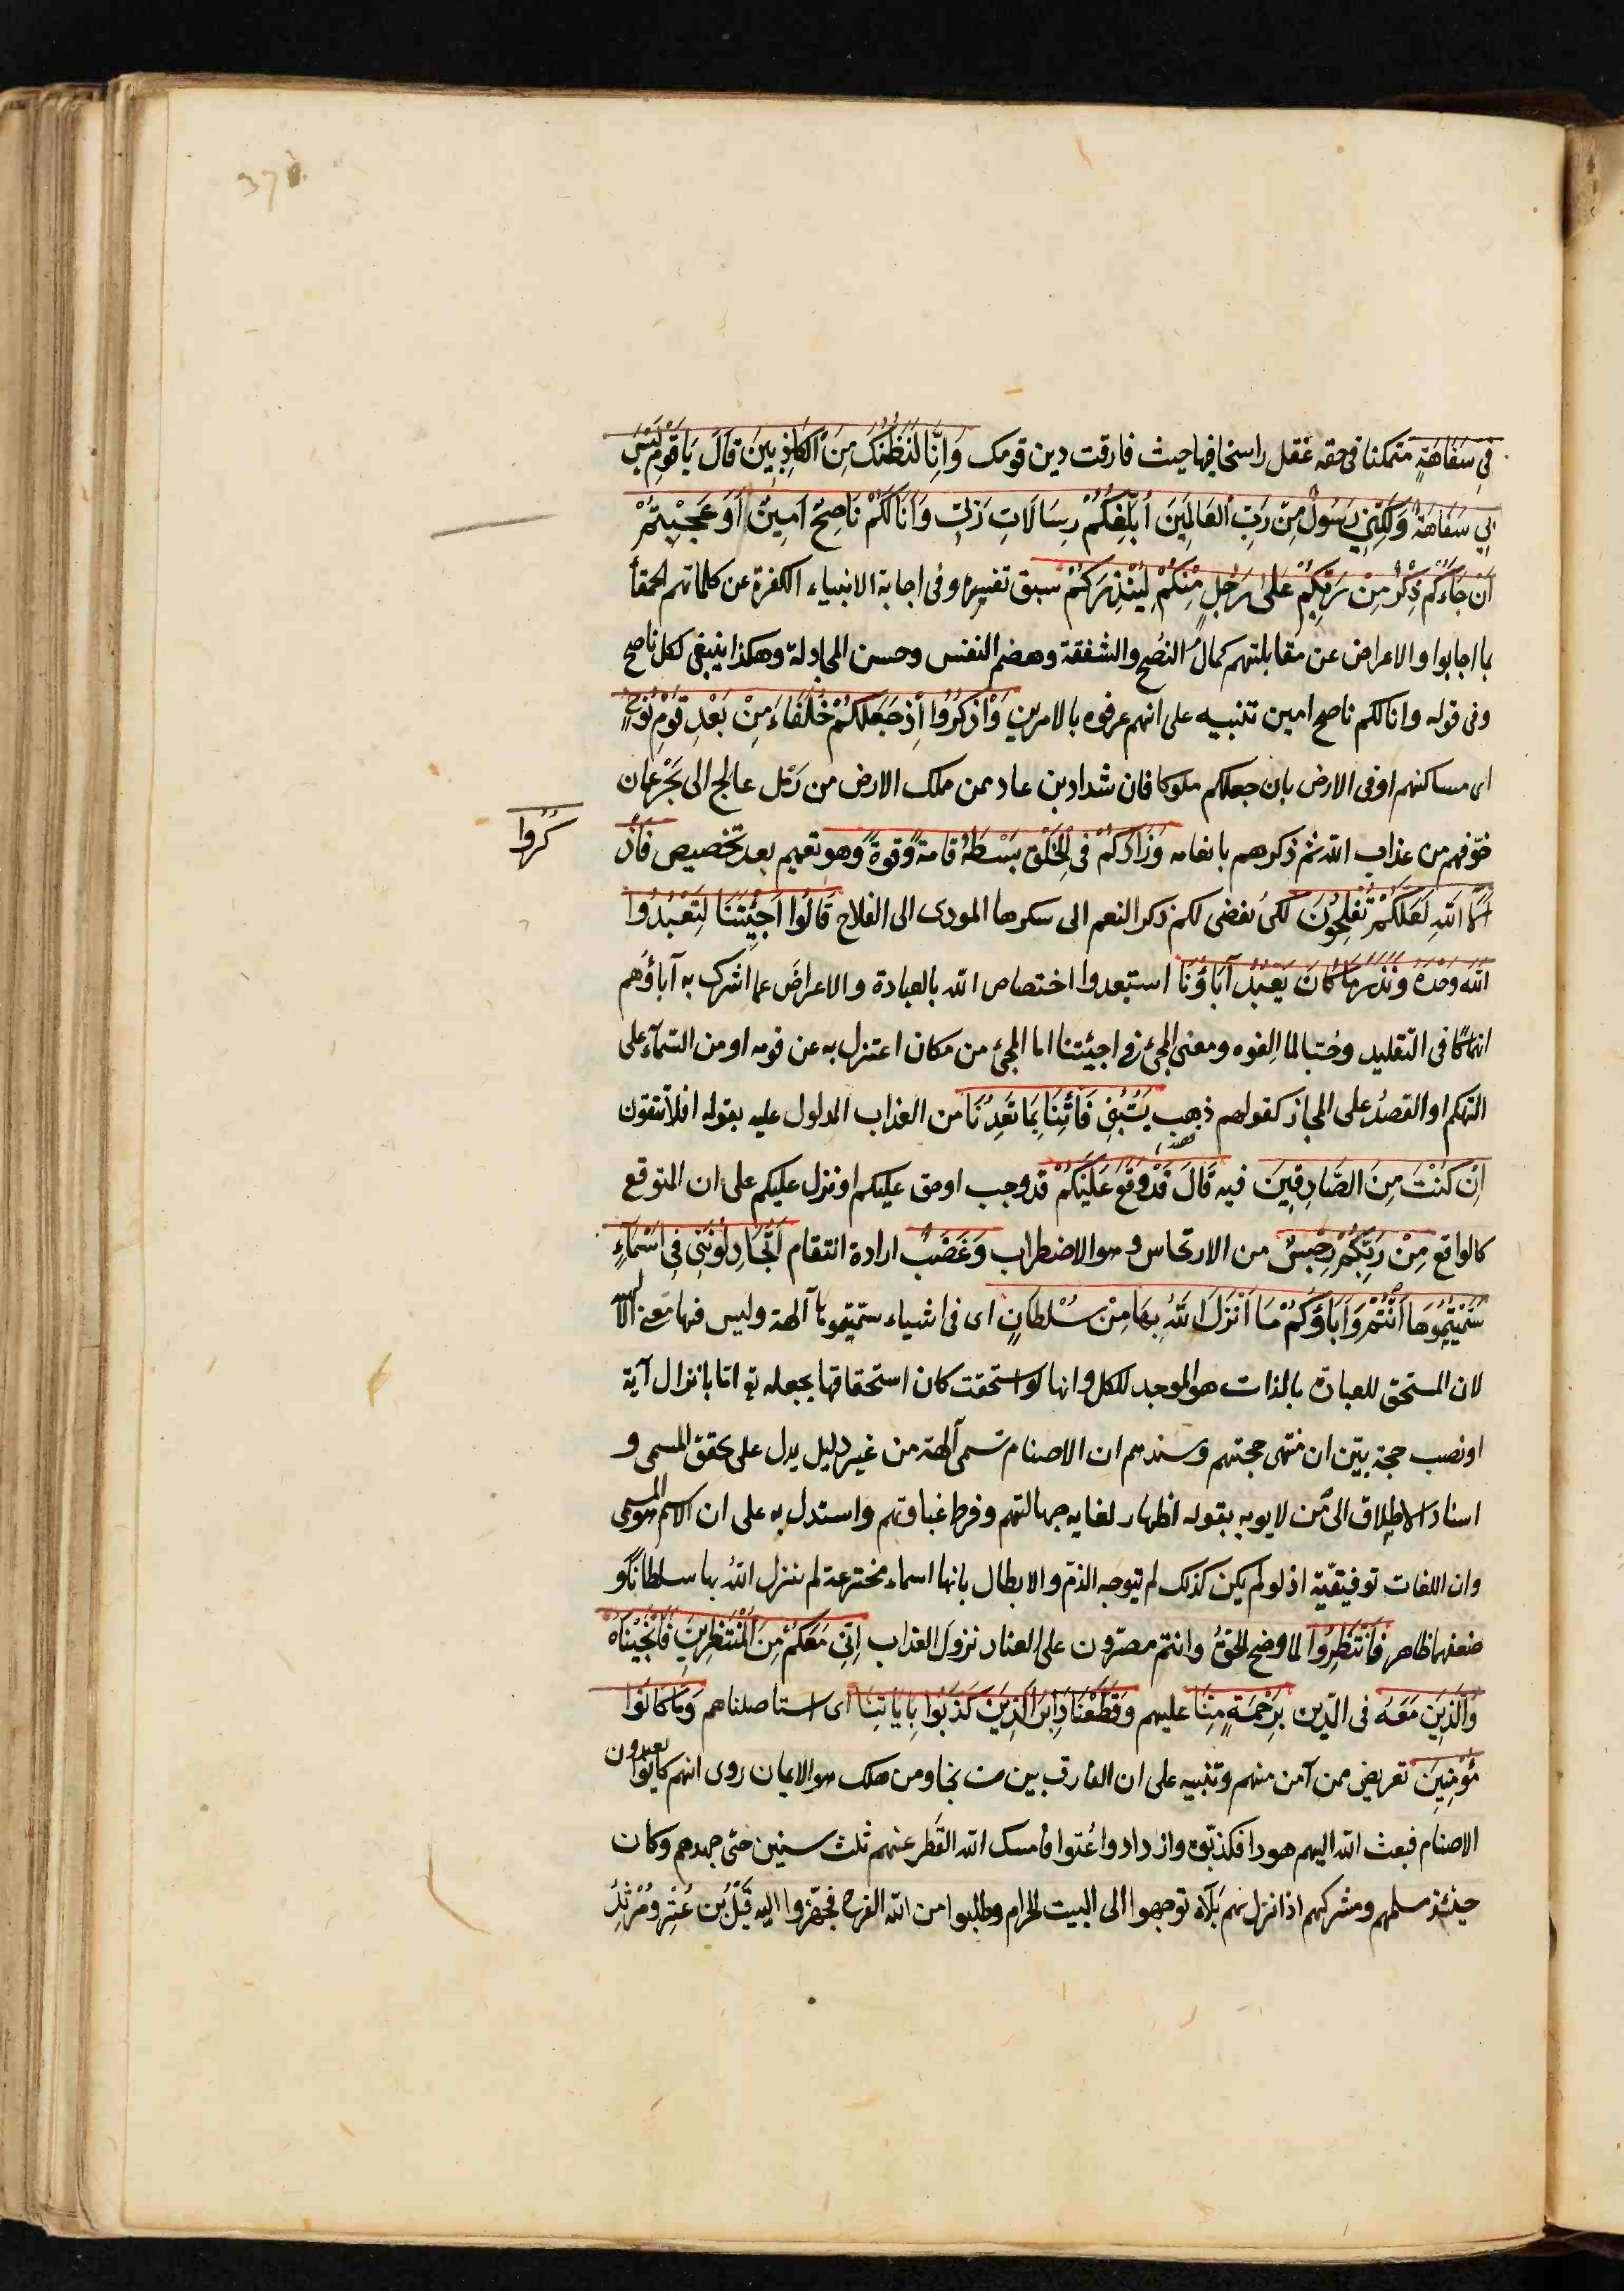 370
فِي سَفَاهَةٍ متمكنا في خفة عقل راسخا فيها حيث فارقت دين قومك وَاِنَّا لَنَظُنُّكَ مِنَ الْكَاذِبِينَ قَالَ يَا قَوْمِ لَيْسَ
بِي سَفَاهَةٌ وَلَكِنِّي رَسُولٌ مِنْ رَبِّ الْعَالَمِينَ اُبَلِّغُكُمْ رِسَالَاتِ رَبِّي وَاَنَا لَكُمْ نَاصِحٌ اَمِينٌ اَوَ عَجِبْتُمْ
اَنْ جَاءَكُمْ ذِكْرٌ مِنْ رَبِّكُمْ عَلَى رَجُلٍ مِنْكُمْ لِيُنْذِرَكُمْ سبق تفسيره وفي اجابة الانبياء الكفرة عن كلماتهم الحمقاً
بما اجابوا والاعراض عن مقابلتهم كمال النصح والشفقة وهضم النفس وحسن المجادلة وهكذا ينبغي لكل ناصح
وفي قوله وانا لكم ناصح امين تنبيه على انهم عرفوه بالامرين وَاذْكُرُوا اِذْ جَعَلَكُمْ خُلَفَاءَ مِنْ بَعْدِ قَوْمِ نُوحٍ
اى مساكنهم او في الارض بان جعلكم ملوكا فان شداد بن عاد ممن ملك الارض من رمل عالج الى بحر عمان
خوفهم من عذاب الله ثم ذكرهم بانعامه وَزَادَكُمْ فِي الْخَلْقِ بَسْطَةً قامة وقوة وهو تعميم بعد تخصيص فَاذْ
كُرُوا
آلَاءَ اللهِ لَعَلَّكُمْ تُفْلِحُونَ لكى يفضى لكم ذكر النعم الى شكرها المودى الى الفلاح قَالُوا اَجِئْتَنَا لِنَعْبُدُوا
اللهَ وَحْدَهُ وَنَذَرَ مَا كَانَ يَعْبُدُ آبَاؤُنَا استبعدوا اختصاص الله بالعبادة والاعراض عما اشرك به آباؤهم
انهماكا في التقليد وحبا لما الفوه ومعنى المجئ في اجيئتنا اما المجئ من مكان اعتزل به عن قومه او من السماء على
التهكم او القصد على المجاز كقولهم ذهب يسبني فَأْتِنَا بِمَا تَعِدُنَا من العذاب المدلول عليه بقوله افلا تتقون
اِنْ كُنْتَ مِنَ الصَّادِقِينَ فيه قَالَ قَدْ وَقَعَ عَلَيْكُمْ قد وجب او حق عليكم او نزل عليكم على ان المتوقع
كالواقع مِنْ رَبِّكُمْ رِجْسٌ من الارتجاس وهو الاضطراب وَغَضَبٌ ارادة انتقام اَتُجَادِلُونَنِي فِي اَسْمَاءٍ
سَمَّيْتُمُوهَا اَنْتُمْ وَآبَاؤُكُمْ مَا اَنْزَلَ اللهُ بِهَا مِنْ سُلْطَانٍ اى في اشياء سميتموها آلهة وليس فيها معنى الالهية
لان المستحق للعبادة بالذات هو الموجد للكل وانها لو استحقت كان استحقاقها بجعله تع اما بانزال آية
او نصب حجة بين ان منتهى حجتهم وسندهم ان الاصنام تسمى آلهة من غير دليل يدل على تحقق المسمى و
اسناد الاطلاق الى من لا يوبه بقوله اظهار لغاية جهالتهم وفرط غباوتهم واستدل به على ان الاسم هو المسمى
وان اللغات توفيقية اذ لو لم يكن كذلك لم يتوجه الذم والابطال بانها اسماء مخترعة لم ينزل الله بها سلطانا و
ضعفهما ظاهر فَانْتَظِرُوا لما وضح الحق وانتم مصرون على العناد نزول العذاب اِنِّي مَعَكُمْ مِنَ الْمُنْتَظِرِينَ فَاَنْجَيْنَاهُ
وَالَّذِينَ مَعَهُ في الدين بِرَحْمَةٍ مِنَّا عليهم وَقَطَعْنَا دَابِرَ الَّذِينَ كَذَّبُوا بِايَاتِنَا اى استاصلناهم وَمَا كَانُوا
مُؤْمِنِينَ تعريض بمن آمن منهم وتنبيه على ان الفارق بين من نجا ومن هلك هو الايمان روى انهم كانوا يعبدون
الاصنام فبعث الله اليهم هودا فكذبوه وازدادوا عتوا فامسك الله القطر عنهم ثلث سنين حتى جهدهم وكان
حينئذ مسلمهم ومشركهم اذا نزل بهم بلاء توجهوا الى البيت الحرام وطلبوا من الله الفرج فجهزوا اليه قيل بن عثر ومرثد